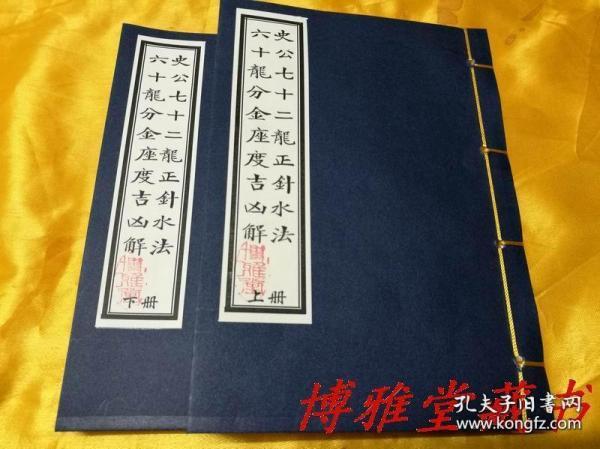 史公七十二龍正針水法
六十龍分金座度吉凶解
下册
史公七十二龍正針水法
六十龍分金座度吉凶解
上册
博雅堂藏书
孔夫子旧書网
www.kongfz.com